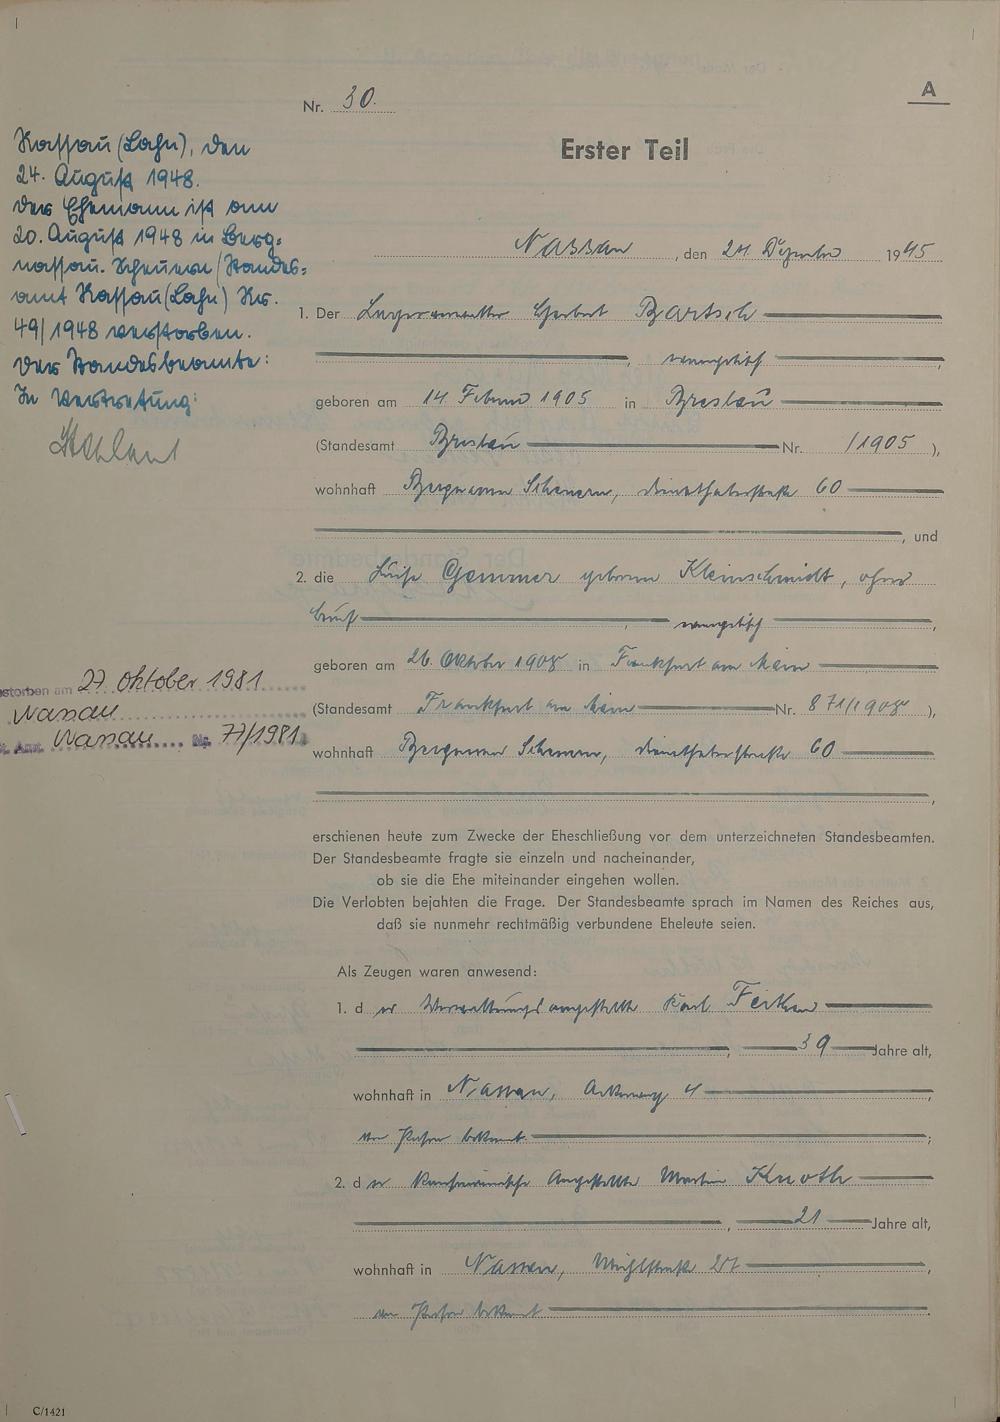 A
Nr. 30.
Erster Teil
Nassau, den 24. Dezember 1945
1. Der Lagerverwalter Herbert Bartsch
, evangelisch,
geboren am 14. Februar 1905 in Breslau
(Standesamt Breslau Nr. /1905 ),
wohnhaft Bergnassau Scheuern, Dienethalerstraße 60
, und
2. die Luise Gemmer geborene Kleinschmidt, ohne
Beruf, evangelisch,
geboren am 26. Oktober 1908 in Frankfurt am Main
(Standesamt Frankfurt am Main Nr. 871/1908 ),
wohnhaft Bergnassau Scheuern, Dienethalerstraße 60
,
erschienen heute zum Zwecke der Eheschließung vor dem unterzeichneten Standesbeamten.
Der Standesbeamte fragte sie einzeln und nacheinander,
ob sie die Ehe miteinander eingehen wollen.
Die Verlobten bejahten die Frage. Der Standesbeamte sprach im Namen des Reiches aus,
daß sie nunmehr rechtmäßig verbundene Eheleute seien.
Als Zeugen waren anwesend:
1. d er Verwaltungsangestellte Karl
, 39 Jahre alt,
wohnhaft in Nassau, 4,
von Person bekannt;
2. d er Kaufmännische Angestellte Martin Knoth
, 21 Jahre alt,
wohnhaft in Nassau, Mühlstraße
von Person bekannt.
Nassau (Lahn), den
24. August 1948.
Der Ehemann ist am
20. August 1948 in Berg-
nassau-Scheuern (Standes-
amt Nassau (Lahn) Nr.
49/1948 verstorben.
Der Standesbeamte:
In Vertretung:
storben am 27. Oktober 1981
Nassau
St. Amt. Nassau Nr. 77/1981
C/1421